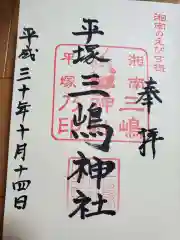 湘南のえびす様
奉拝
湘南三嶋
平塚
三嶋神社
平塚乃印
平成三十年十月十四日